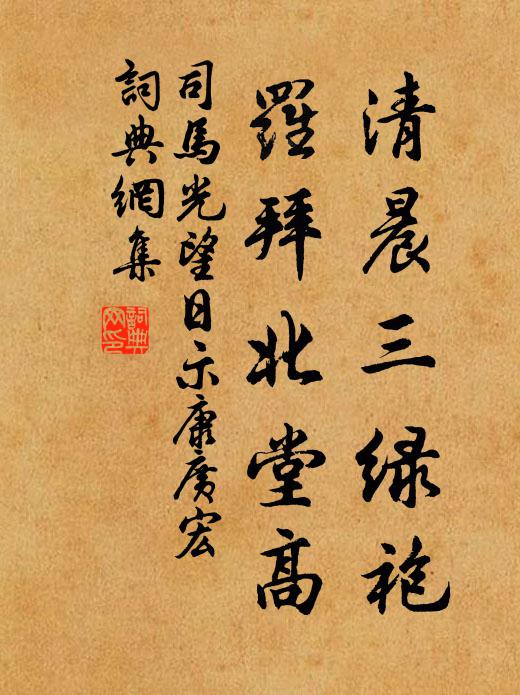 清晨三绿袍
羅拜北堂高
司馬光望日示康廣宏
詞典網集
詞典網印